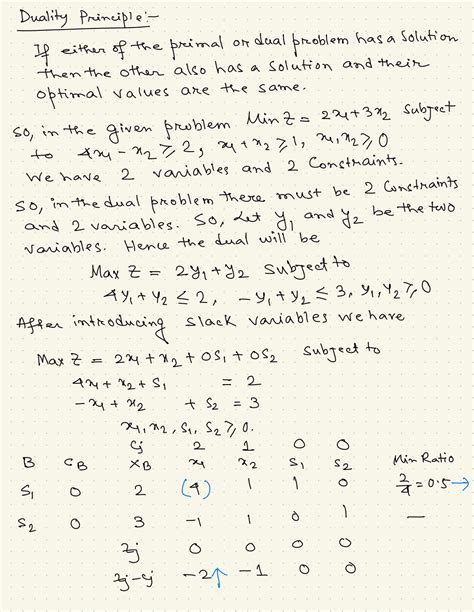 Duality Principle:-
If either of the primal or dual problem has a solution
then the other also has a solution and their
optimal values are the same.
So, in the given problem Min Z = 2x₁+3x₂ Subject
to 4x₁ - x₂ ≥ 2, x₁ + x₂ ≥ 1, x₁, x₂ ≥ 0
We have 2 variables and 2 Constraints.
So, in the dual problem there must be 2 Constraints
and 2 variables. So, Let y₁ and y₂ be the two
variables. Hence the dual will be
Max Z = 2y₁ + y₂ Subject to
4y₁ + y₂ ≤ 2, -y₁ + y₂ ≤ 3, y₁, y₂ ≥ 0
After introducing slack variables we have
Max Z = 2x₁ + x₂ + 0S₁ + 0S₂ Subject to
4x₁ + x₂ + S₁ = 2
-x₁ + x₂ + S₂ = 3
x₁, x₂, S₁, S₂ ≥ 0.
Cj 2 1 0 0
B CB XB x₁ x₂ S₁ S₂ Min Ratio
S₁ 0 2 (4) 1 1 0 2/4 = 0.5 →
S₂ 0 3 -1 1 0 1 —
Zj 0 0 0 0
Zj-Cj -2↑ -1 0 0